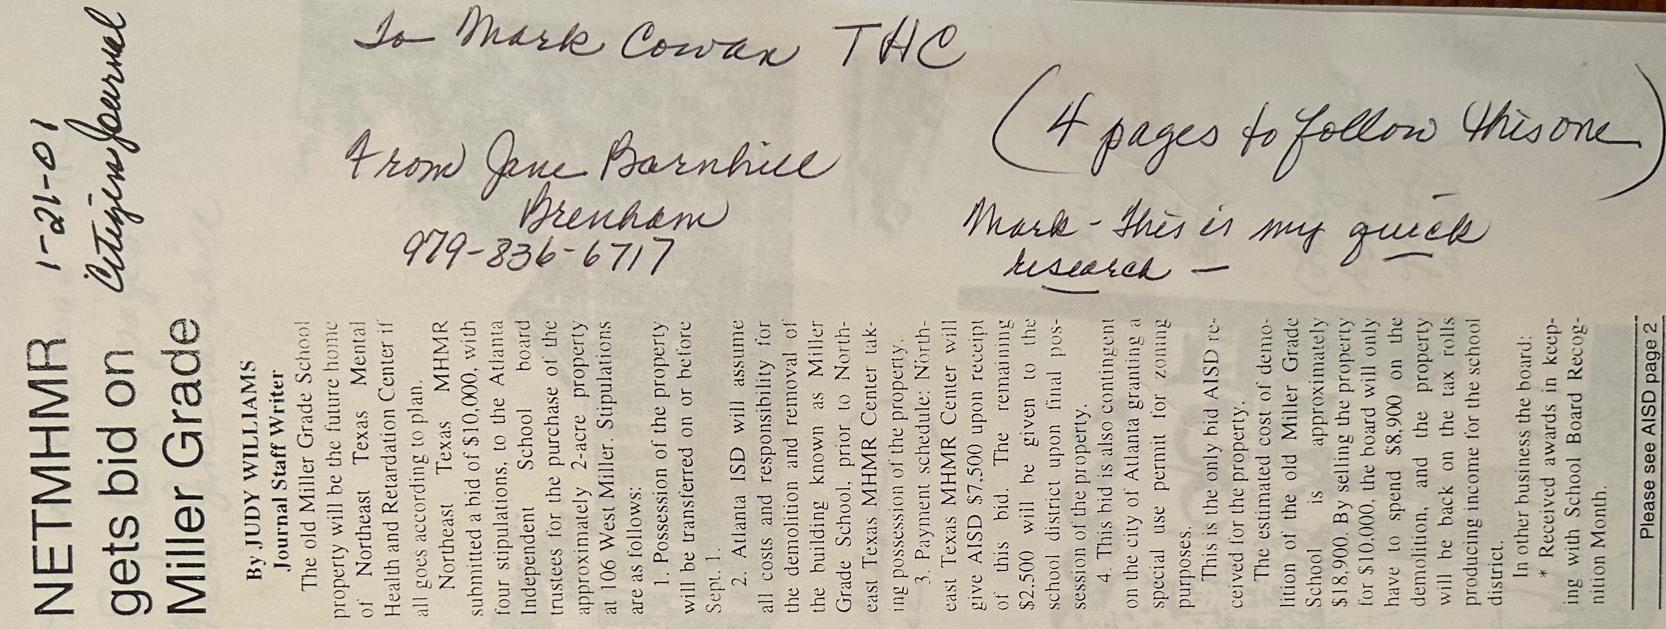 NETMHMR
gets bid on
Miller Grade
1-21-01
Citizens Journal
By JUDY WILLIAMS
Journal Staff Writer
The old Miller Grade School
property will be the future home
of Northeast Texas Mental
Health and Retardation Center if
all goes according to plan.
Northeast Texas MHMR
submitted a bid of $10,000, with
four stipulations, to the Atlanta
Independent School board
trustees for the purchase of the
approximately 2-acre property
at 106 West Miller. Stipulations
are as follows:
1. Possession of the property
will be transferred on or before
Sept. 1.
2. Atlanta ISD will assume
all costs and responsibility for
the demolition and removal of
the building known as Miller
Grade School, prior to North-
east Texas MHMR Center tak-
ing possession of the property.
3. Payment schedule: North-
east Texas MHMR Center will
give AISD $7,500 upon receipt
of this bid. The remaining
$2,500 will be given to the
school district upon final pos-
session of the property.
4. This bid is also contingent
on the city of Atlanta granting a
special use permit for zoning
purposes.
This is the only bid AISD re-
ceived for the property.
The estimated cost of demo-
lition of the old Miller Grade
School is approximately
$18,900. By selling the property
for $10,000, the board will only
have to spend $8,900 on the
demolition, and the property
will be back on the tax rolls
producing income for the school
district.
In other business the board:
* Received awards in keep-
ing with School Board Recog-
nition Month.
Please see AISD page 2
To Mark Cowan THC
From Jane Barnhill
Brenham
979-836-6717
(4 pages to follow this one)
Mark - This is my quick
research -